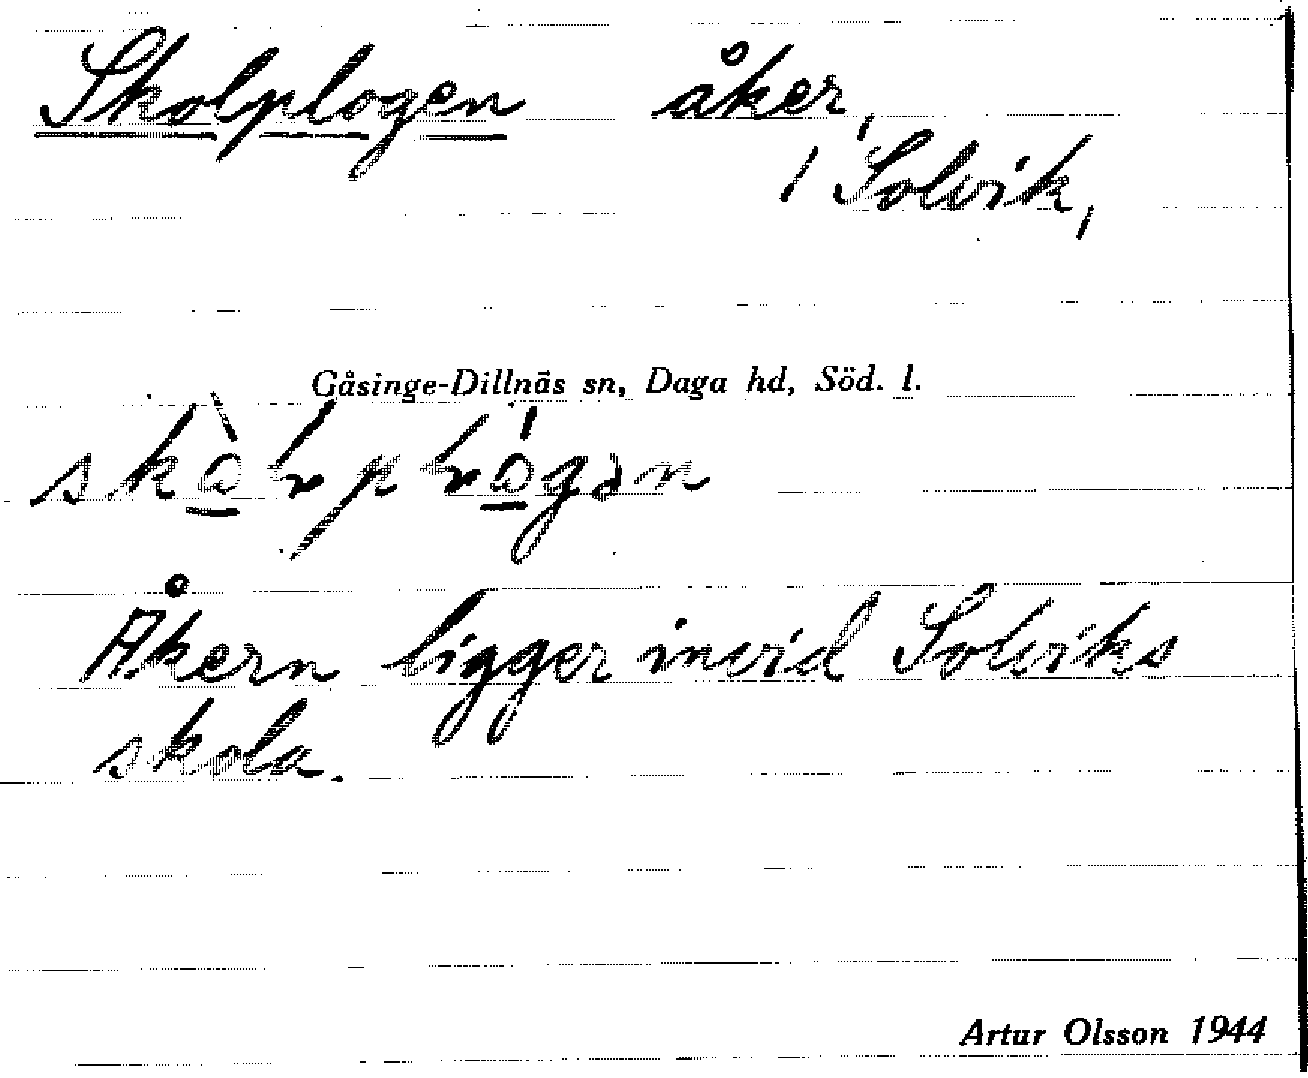 Skolplogen åker,
1 Solvik,
Gåsinge-Dillnäs sn, Daga hd, Söd. l.
Åkern ligger invid Solviks
skola.
Artur Olsson 1944